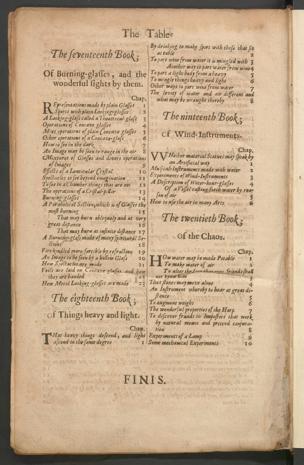 The Table
The seventeenth Book;
Of Burning-glasses, and the
wonderful sights by them.
Chap.
Representations made by plain Glasses 1
Sports with plain Looking-glasses 2
A Looking-glass called a Theatrical glass 3
Operations of Concave glasses 4
Mixt operations of plain Concave glasses 5
Other operations of a Concave-glass 6
How to see in the dark 7
An Image may be seen to hang in the air
Mixtures of Glasses and divers operations
of Images
Effects of a Lenticular Crystal
Spectacles to see beyond imagination
To see in a Chamber things that are not 12
The operations of a Crystal-pillar 13
Burning-glasses 14
A Parabolical Section, which is of Glasses the
most burning 15
That may burn obliquely and at very
great distance 16
That may burn at infinite distance 17
A Burning-glass made of many spherical Sections
Fire kindled more forcibly by refraction 19
An Image to be seen by a hollow Glass 20
How Spectacles are made 21
Foils are laid on Concave glasses, and how
they are banded 22
How Metal Looking-glasses are made 23
The eighteenth Book;
Of Things heavy and light.
Chap.
That heavy things descend, and light
ascend in the same degree 1
By drinking to make sport with those that sit
at table 2
To part wine from water it is mingled with 3
Another way to part water from wine 4
To part a light body from a heavy 5
To mingle things heavy and light 6
Other ways to part wine from water 7
The levity of water and air different and
what may be wrought thereby 8
The nineteenth Book;
Of Wind-Instruments.
Chap.
Whether material Statues may speak by
an Artificial way 1
Musical Instruments made with water 2
Experiments of Wind-Instruments 3
A Description of Water-hour-glasses 4
Of a Vessel casting forth water by reason
of air 5
How to use the air in many Arts 6
The twentieth Book;
of the Chaos.
Chap.
How water may be made Potable 1
To make water of air 2
To alter the face that ones friends shall
not know him 3
That stones may move alone 4
An Instrument whereby to hear at great distance 5
To augment weight 6
The wonderful properties of the Harp 7
To discover frauds in Impostors that work
by natural means and pretend conjuration 8
Experiments of a Lamp 9
Some mechanical Experiments 10
FINIS.